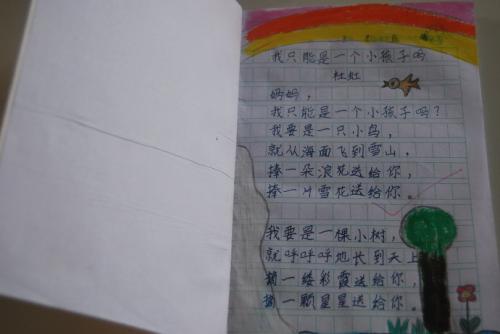 我只能是一个小孩子吗
妈妈，
我只能是一个小孩子吗？
我要是一只小鸟，
就从海面飞到雪山，
捧一朵浪花送给你，
捧一片雪花送给你。
我要是一棵小树，
就呼呼呼地长到天上
一缕彩霞送给你，
一颗星星送给你。